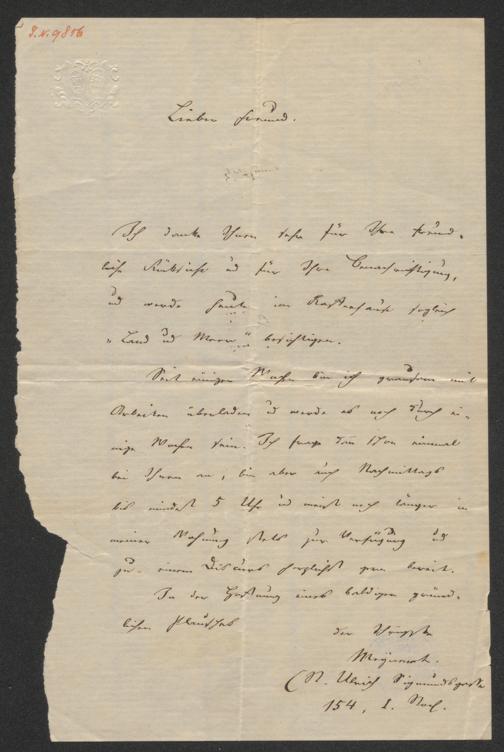 J. N. 9816
Lieber Freund.
Ich danke Ihnen sehr für Ihre freund-
liche Rücksicht und für Ihre Benachrichtigung,
und werde heute im Kaffeehause sogleich
"Land und Meer" besichtigen.
Seit einigen Wochen bin ich grausam mit
Arbeiten überladen und werde es noch durch ei-
nige Wochen sein. Ich frage dann schon einmal
bei Ihnen an, bin aber auch Nachmittags
bis mindest 5 Uhr und meist noch länger in
meiner Wohnung stets zur Verfügung und
zu einem Discurs herzlichst gern bereit.
In der Hoffnung eines baldigen gründ-
lichen Plausches
der Ihrigste
(St. Ulrich Sigmundsgasse
154, I. Stock.